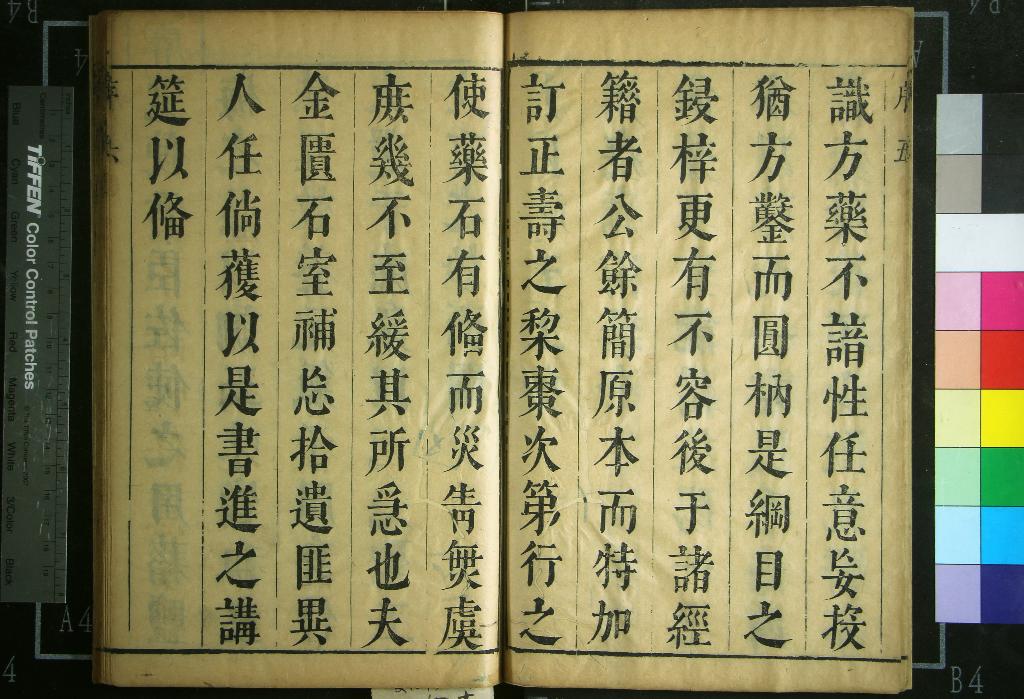 識方藥不諳性任意妄投
猶方鑿而圓枘是綱目之
鋟梓更有不容後于諸經
籍者公餘簡原本而特加
訂正壽之梨棗次第行之
使藥石有俻而災眚無虞
庶幾不至緩其所急也夫
金匱石室補忘拾遺匪異
人任倘獲以是書進之講
筵以俻
TIFFEN Color Control Patches
Blue Cyan Green Yellow Red Magenta White 3/Color Black
A4
B4